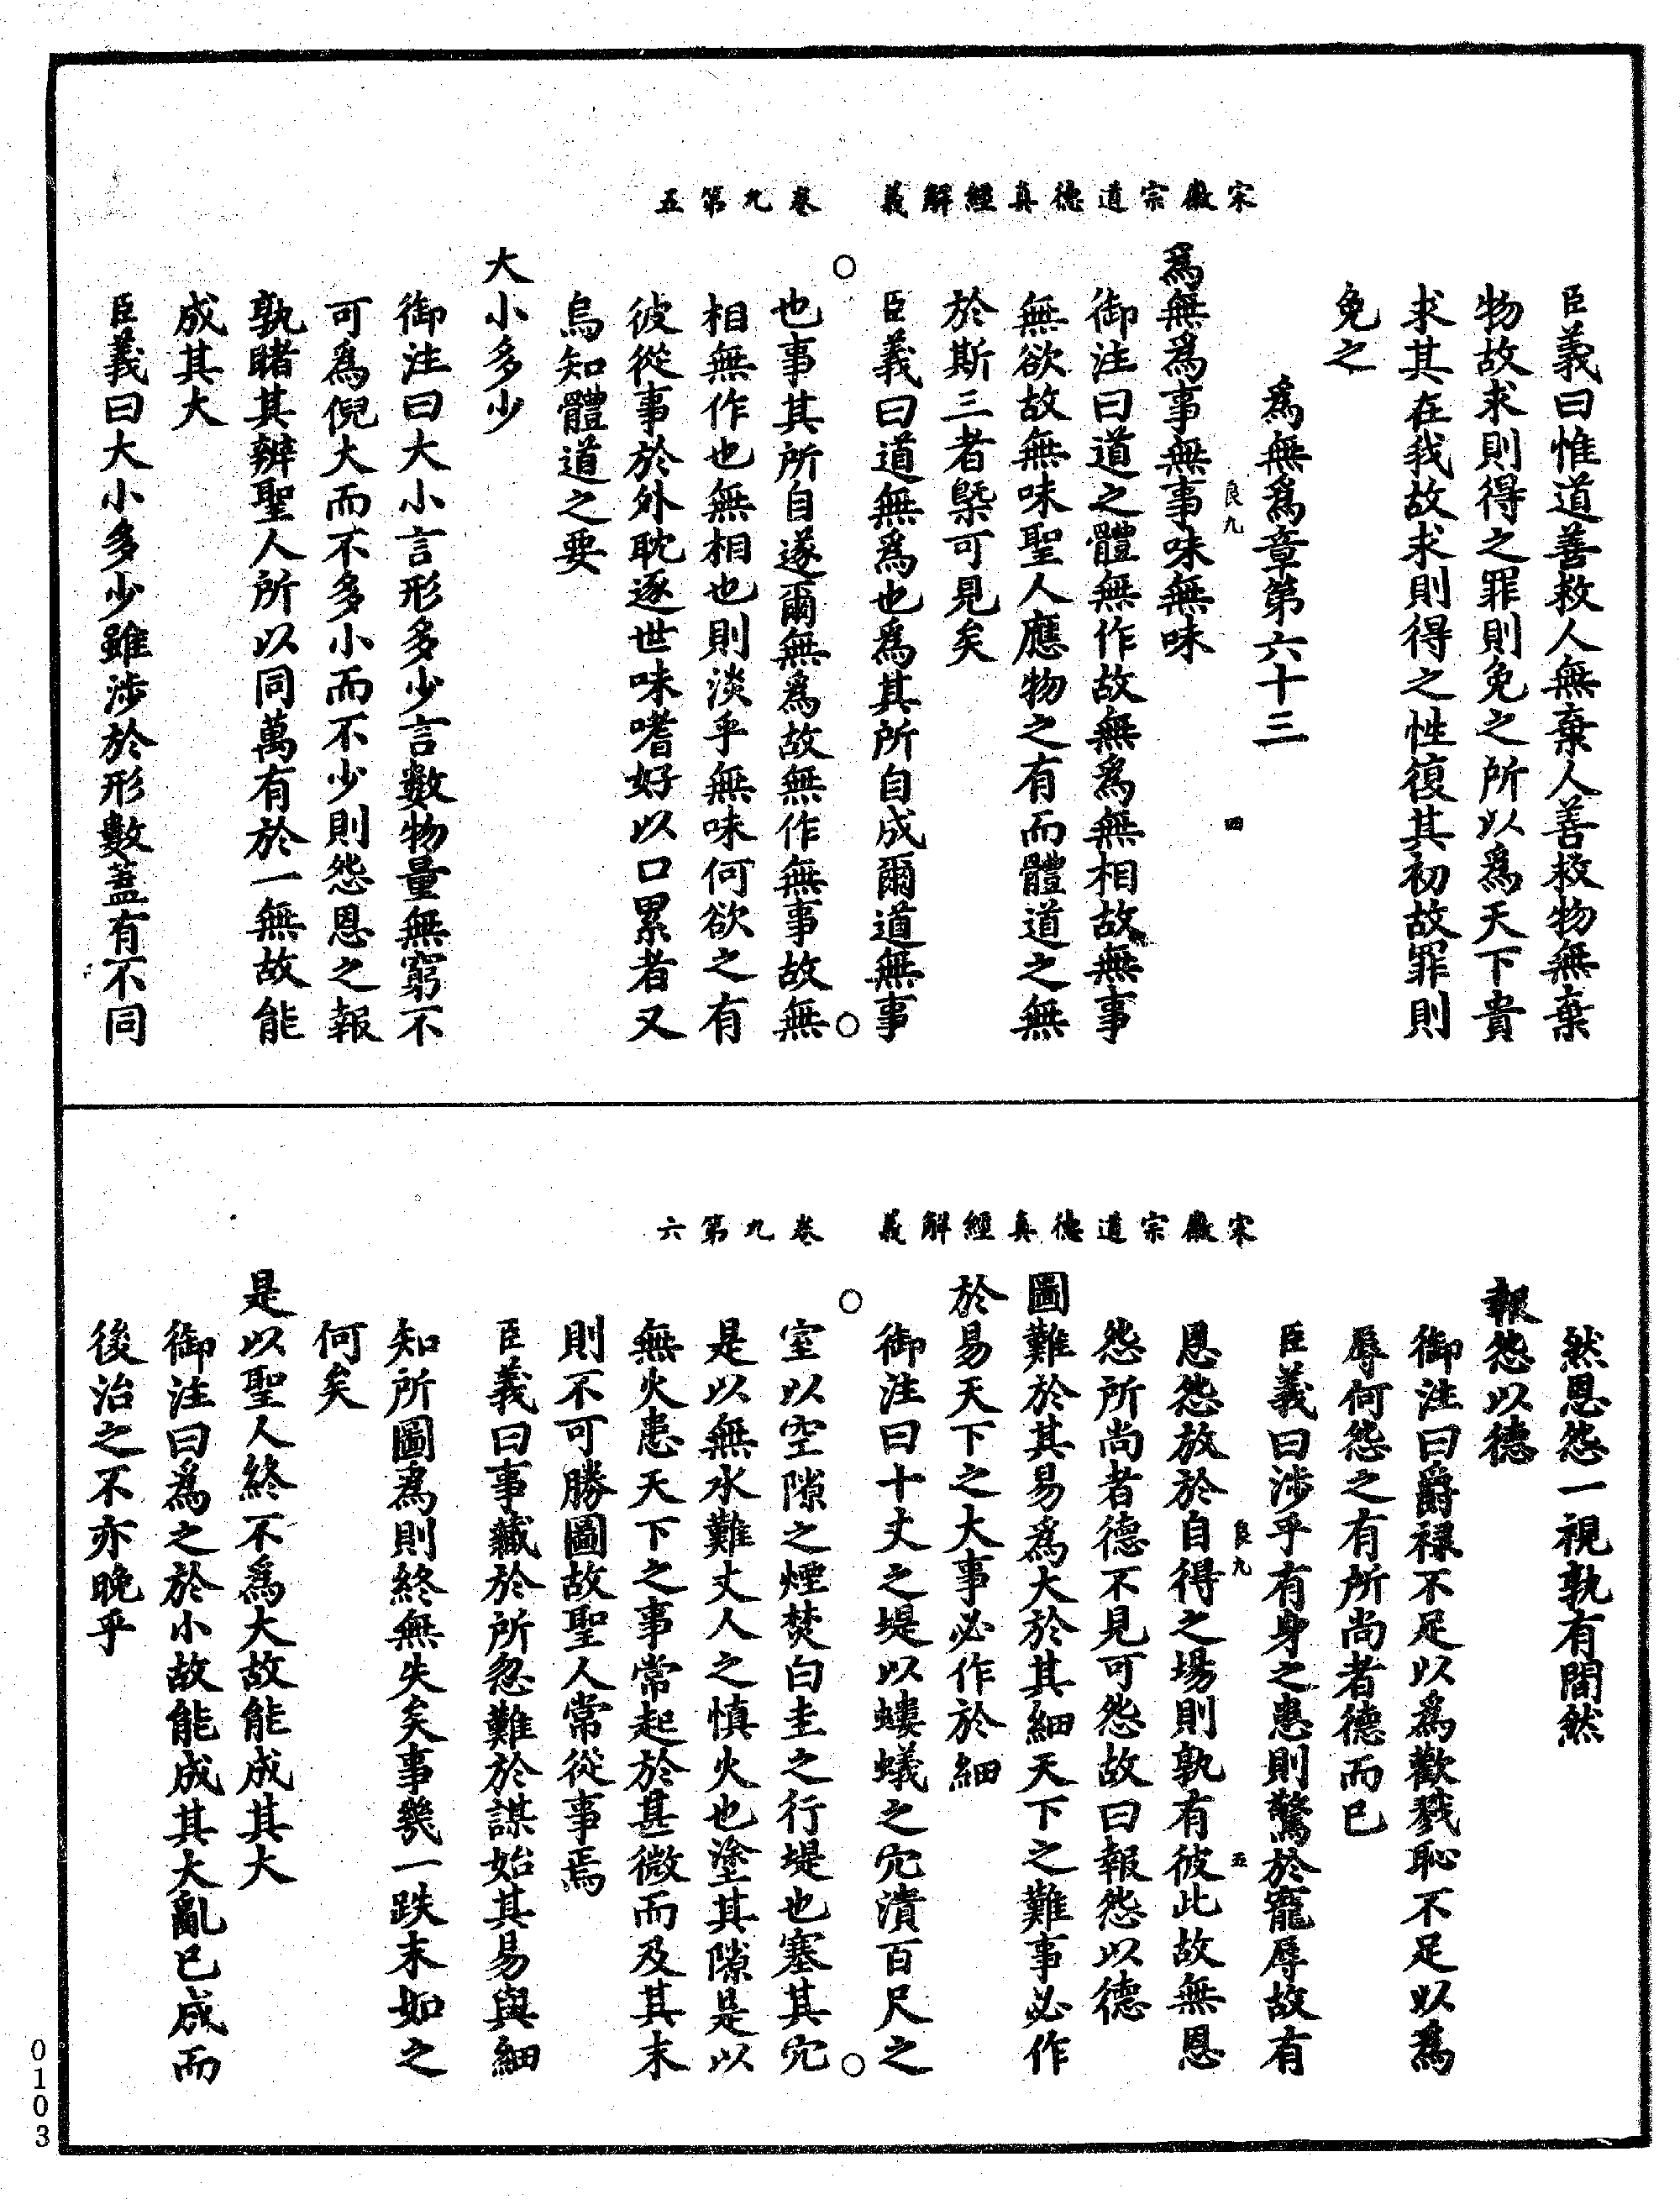 宋徽宗道德真經解義　卷九第五
臣義曰惟道善救人無棄人善救物無棄
物故求則得之罪則免之所以爲天下貴
求其在我故求則得之性復其初故罪則
免之
爲無爲章第六十三
良九　四
爲無爲事無事味無味
御注曰道之體無作故無爲無相故無事
無欲故無味聖人應物之有而體道之無
於斯三者槩可見矣
臣義曰道無爲也爲其所自成爾道無事
也事其所自遂爾無爲故無作無事故無
相無作也無相也則淡乎無味何欲之有
彼從事於外耽逐世味嗜好以口累者又
烏知體道之要
大小多少
御注曰大小言形多少言數物量無窮不
可爲倪大而不多小而不少則怨恩之報
孰睹其辨聖人所以同萬有於一無故能
成其大
臣義曰大小多少雖涉於形數蓋有不同
宋徽宗道德真經解義　卷九第六
然恩怨一視孰有間然
報怨以德
御注曰爵禄不足以爲歡戮恥不足以爲
辱何怨之有所尚者德而已
臣義曰涉乎有身之患則驚於寵辱故有
良九　五
恩怨放於自得之場則孰有彼此故無恩
怨所尚者德不見可怨故曰報怨以德
圖難於其易爲大於其細天下之難事必作
於易天下之大事必作於細
御注曰十丈之堤以螻蟻之穴潰百尺之
室以空隙之煙焚白圭之行堤也塞其穴
是以無水難丈人之慎火也塗其隙是以
無火患天下之事常起於甚微而及其末
則不可勝圖故聖人常從事焉
臣義曰事藏於所忽難於謀始其易與細
知所圖爲則終無失矣事幾一跌末如之
何矣
是以聖人終不爲大故能成其大
御注曰爲之於小故能成其大亂已成而
後治之不亦晚乎
0103